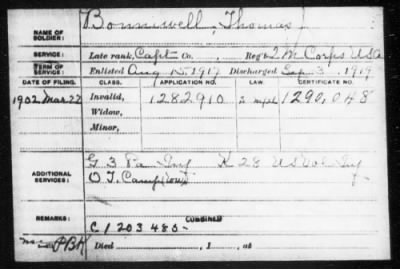 NAME OF SOLDIER: Bonniwell, Thomas
SERVICE: Late rank, Capt Co. , Reg't 2 M Corps USA
TERM OF SERVICE: Enlisted Aug 15 1917 Discharged Sep 3, 1919
DATE OF FILING. CLASS. APPLICATION NO. LAW. CERTIFICATE NO.
1902 Mar 22 Invalid, 1282910 1290,048
Widow,
Minor,
G 3 Pa Inf K 28 US Vol Inf
ADDITIONAL SERVICES: O T Camp
REMARKS: COMBINED
C 1 203 485
Died , 1 , at